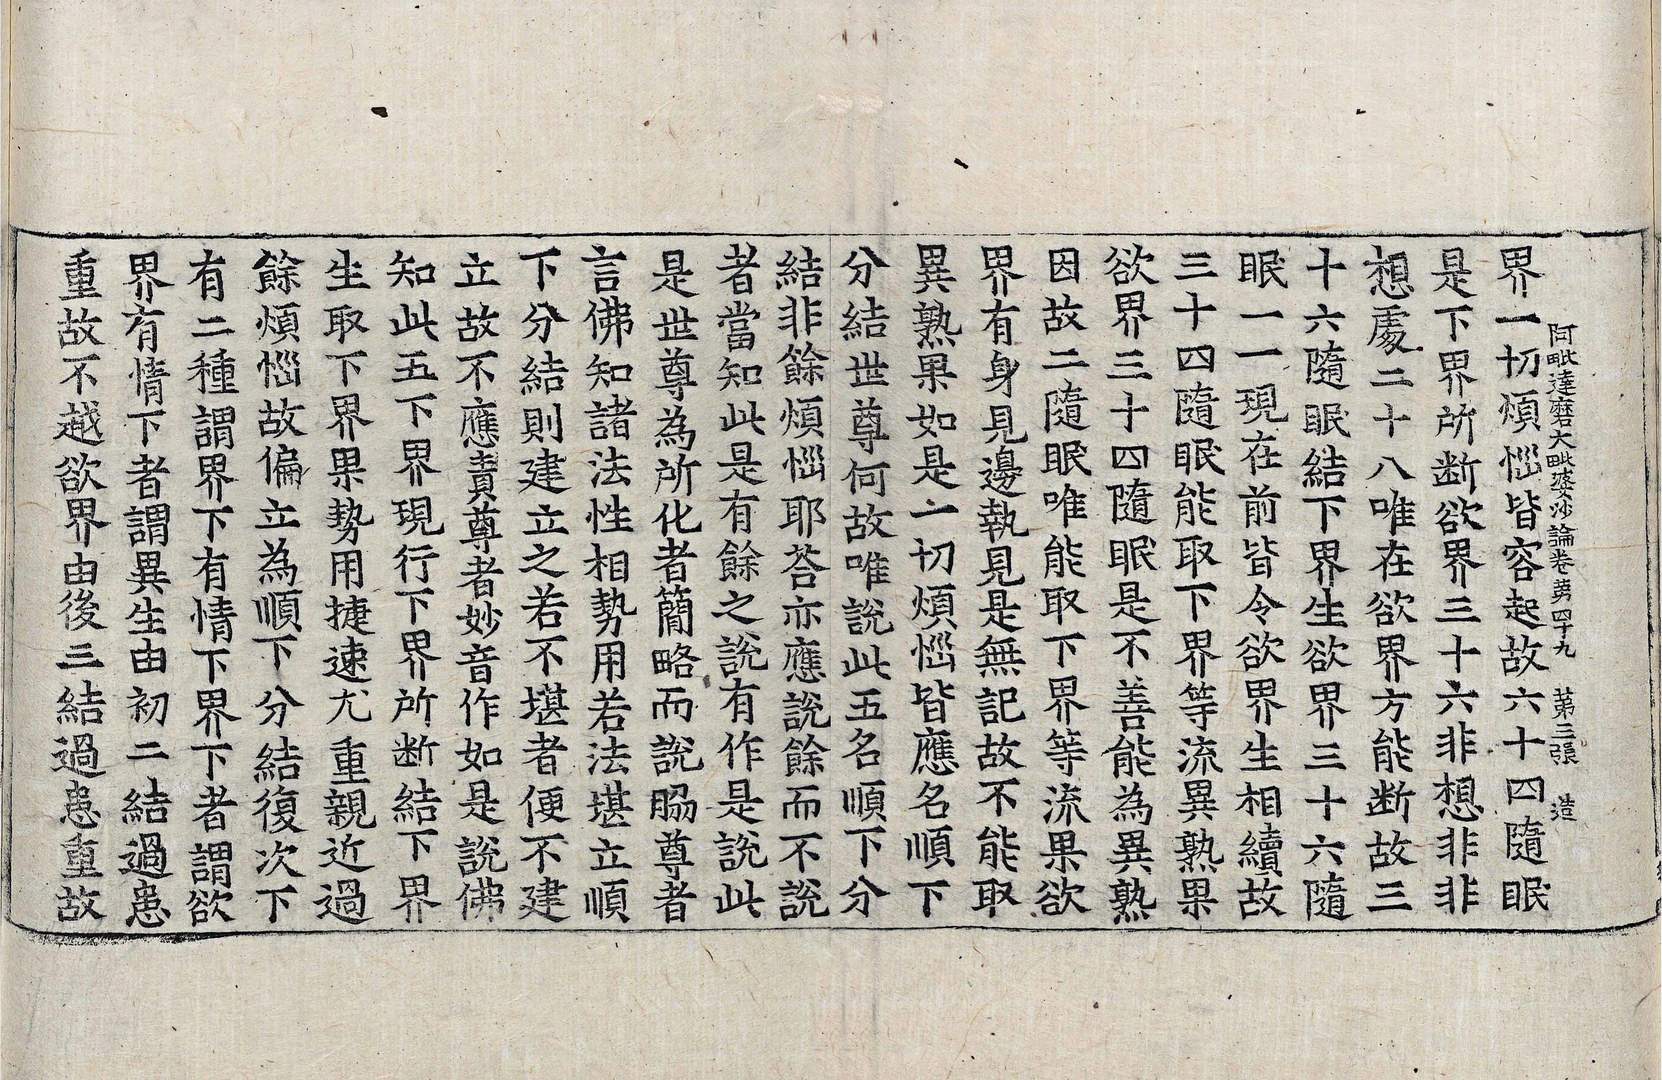 阿毗達磨大毗婆沙論卷苐四十九 苐三張 造
界一切煩惱皆容起故六十四隨眠
是下界所断欲界三十六非想非非
想處二十八唯在欲界方能断故三
十六隨眠結下界生欲界三十六隨
眠一一現在前皆令欲界生相續故
三十四隨眠能取下界等流異熟果
欲界三十四隨眠是不善能為異熟
因故二隨眠唯能取下界等流果欲
界有身見邊執見是無記故不能取
異熟果如是一切煩惱皆應名順下
分結世尊何故唯說此五名順下分
結非餘煩惱耶荅亦應說餘而不說
者當知此是有餘之說有作是說此
是世尊為所化者簡略而說脇尊者
言佛知諸法性相勢用若法堪立順
下分結則建立之若不堪者便不建
立故不應責尊者妙音作如是說佛
知此五下界現行下界所断結下界
生取下界果勢用捷速尤重親近過
餘煩惱故偏立為順下分結復次下
有二種謂界下有情下界下者謂欲
界有情下者謂異生由初二結過患
重故不越欲界由後三結過患重故